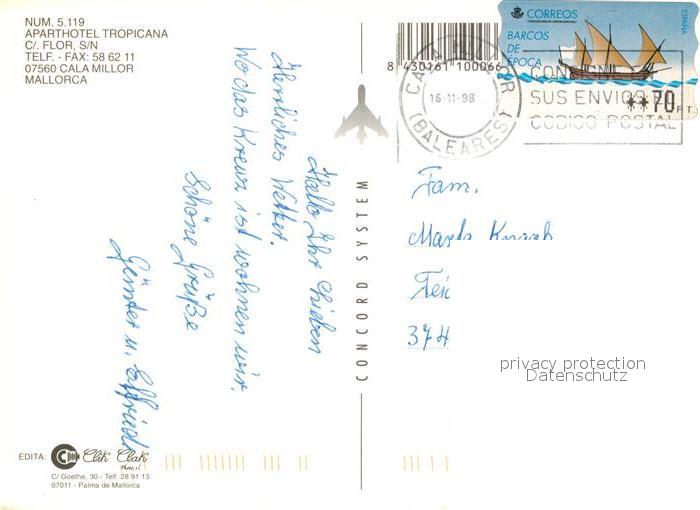 NUM. 5.119
APARTHOTEL TROPICANA
C/. FLOR, S/N
TELF. - FAX: 58 62 11
07560 CALA MILLOR
MALLORCA
8 430161 100066
CORREOS
ESPAÑA
BARCOS
DE
EPOCA
**70 PT
CALA MILLOR
16-11-98
(BALEARES)
CONSIGNE
SUS ENVIOS EL
CODIGO POSTAL
Hallo Ihr Lieben
Herrliches Wetter.
Wo das Kreuz ist wohnen wir.
Schöne Grüße
Günter u. Elfriede
CONCORD SYSTEM
Fam.
374
privacy protection
Datenschutz
EDITA:
Clik Clak
C/ Goethe, 30 - Telf. 28 91 13
07011 - Palma de Mallorca